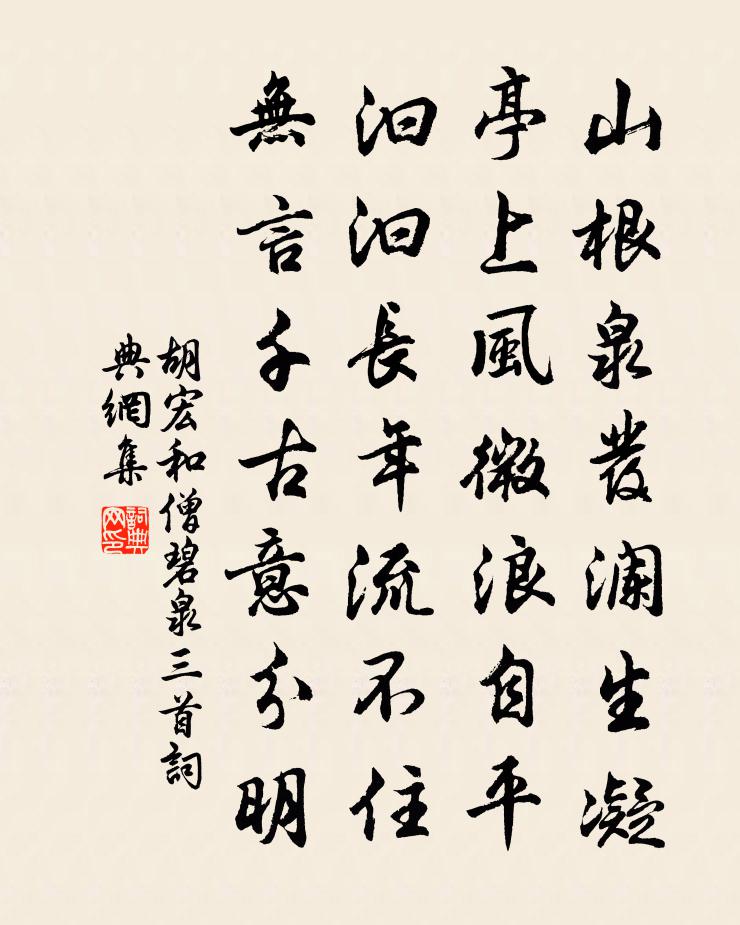 山根泉發瀾生凝
亭上風微浪自平
汩汩長年流不住
無言千古意分明
胡宏和僧碧泉三首詞
典網集
詞典
网印